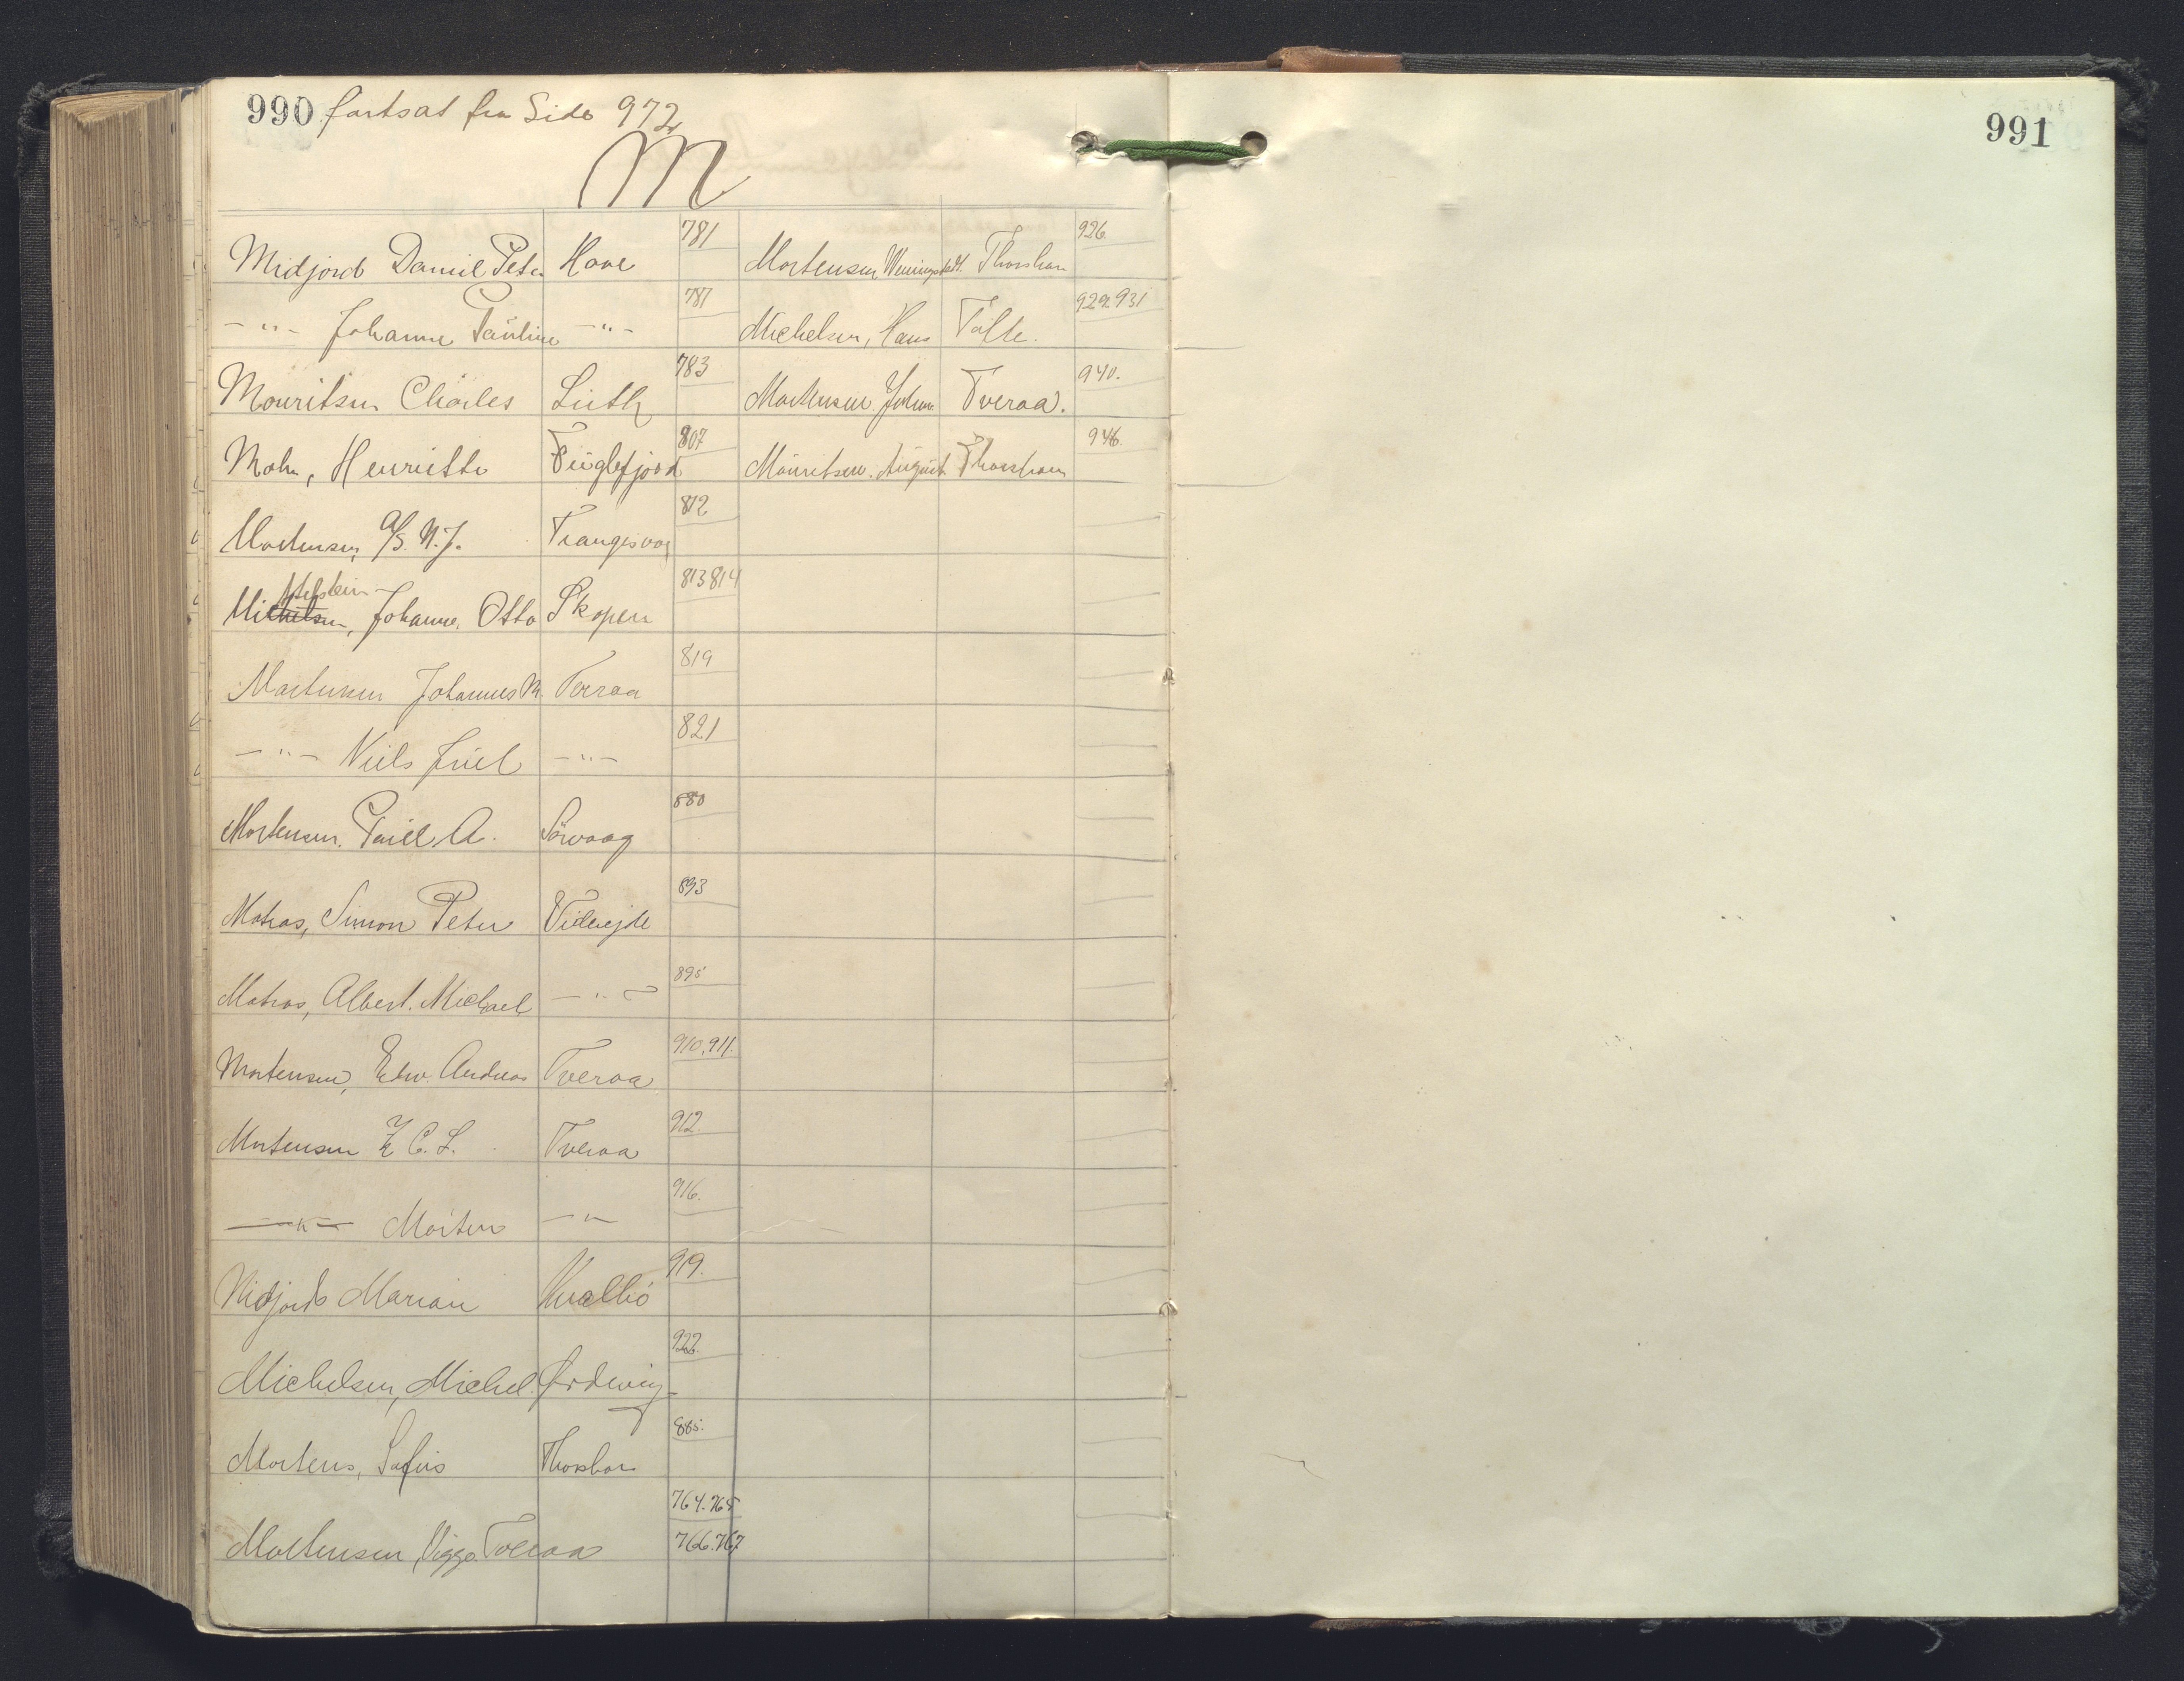 990 fortsat fra Side 972
M
Midjord Daniel Peter Hove 781
-"- Johanne Pauline -"- 781
Mouritsen Charles 783
Mohn, Henriette Fuglefjord 807
Mortensen, A/S. N. J. Trangisvaag 812
Mi Johanne, Otto Skopen 813 814
Mortensen Johannes M. Tveraa 819
-"- Niels Juel -"- 821
Mortensen. Poul A. Sörvaag 880
Matras, Simon Peter Viderejde 893
Matras, Albert. Michael -"- 895
Mortensen, Edw. Andreas Tveraa 910. 911.
Mortensen C. L. Tveraa 912.
-"- Morten -"- 916.
Midjord Marian Hvalbö 919.
Michelsen, Michel. Ördevig 922.
Mortens, Sofus Thorshavn 885.
Mortensen, Viggo Tveraa 764. 765
766. 767
Mortensen Wenningstedt. Thorshavn 926.
Michelsen, Hans Tofte. 929. 931
Mortensen. Johan Tveraa. 940.
Mouritsen. August Thorshavn 946.
991